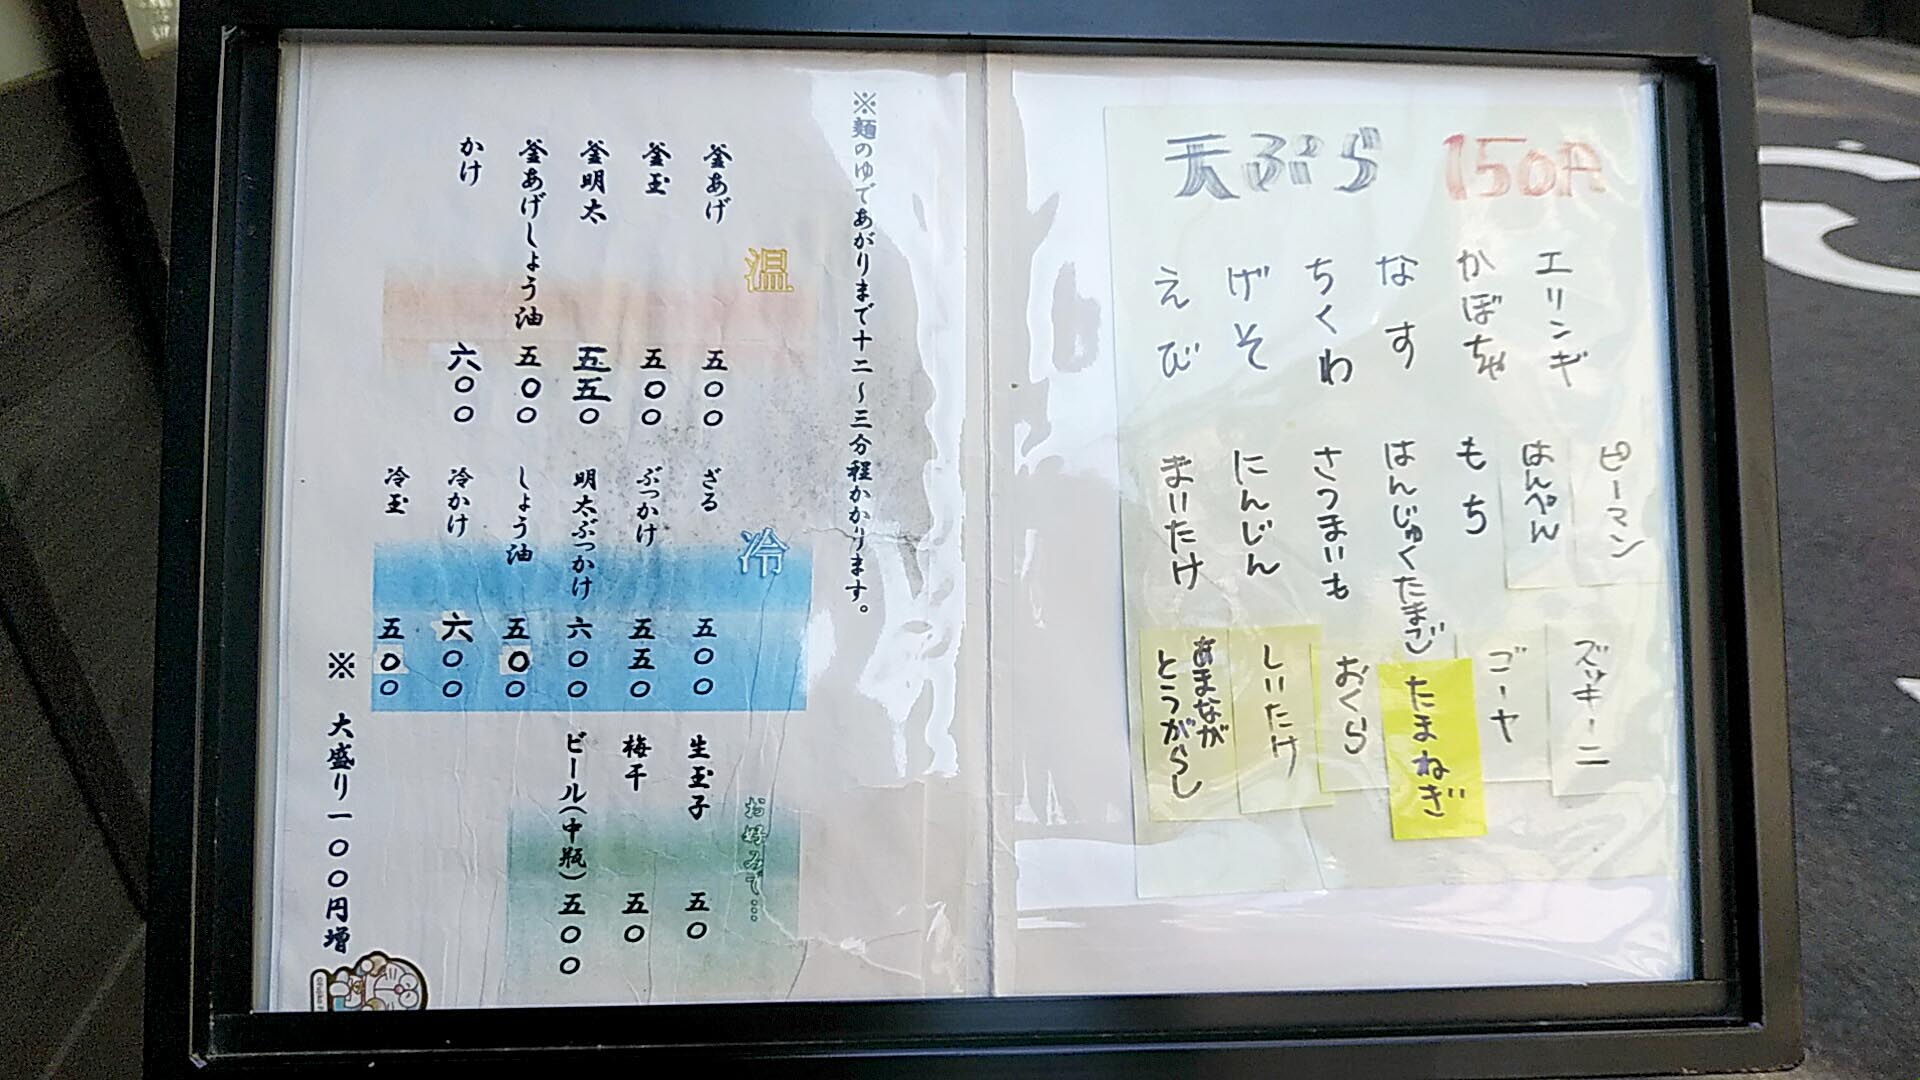 天ぷら 150円
エリンギ
かぼちゃ
なす
ちくわ
げそ
えび
ピーマン
はんぺん
もち
はんじゅくたまご
さつまいも
にんじん
まいたけ
ズッキーニ
ゴーヤ
たまねぎ
おくら
しいたけ
あまなが
とうがらし
※麺のゆであがりまで十二〜三分程かかります。
温
釜あげ 五〇〇
釜玉 五〇〇
釜明太 五五〇
釜あげしょう油 五〇〇
かけ 六〇〇
冷
ざる 五〇〇
ぶっかけ 五五〇
明太ぶっかけ 六〇〇
しょう油 五〇〇
冷かけ 六〇〇
冷玉 五〇〇
お好みで…
生玉子 五〇
梅干 五〇
ビール(中瓶) 五〇〇
※ 大盛り一〇〇円増